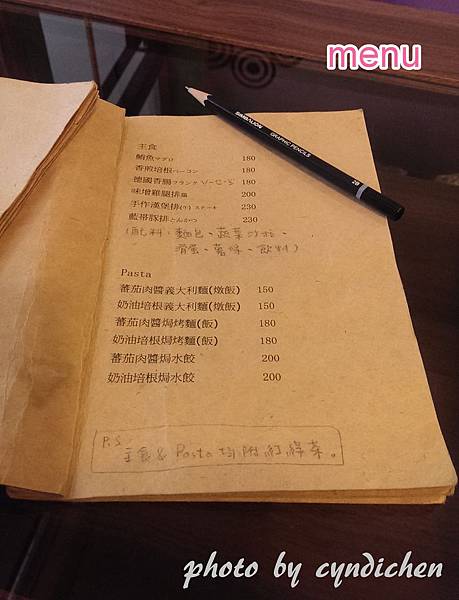 menu
SIMBALION GRAPHIC PENCILS 2B
主食
鮪魚マグロ 180
香煎培根ベーコン 180
德國香腸フランク 180
味增雞腿排 200
手作漢堡排(牛)ステーキ 230
藍帶豚排とんかつ 230
(配料：麵包、蔬菜沙拉、
滑蛋、薯條、飲料)
Pasta
蕃茄肉醬義大利麵(燉飯) 150
奶油培根義大利麵(燉飯) 150
蕃茄肉醬焗烤麵(飯) 180
奶油培根焗烤麵(飯) 180
蕃茄肉醬焗水餃 200
奶油培根焗水餃 200
P.S.
主食&Pasta均附紅綠茶。
photo by cyndichen